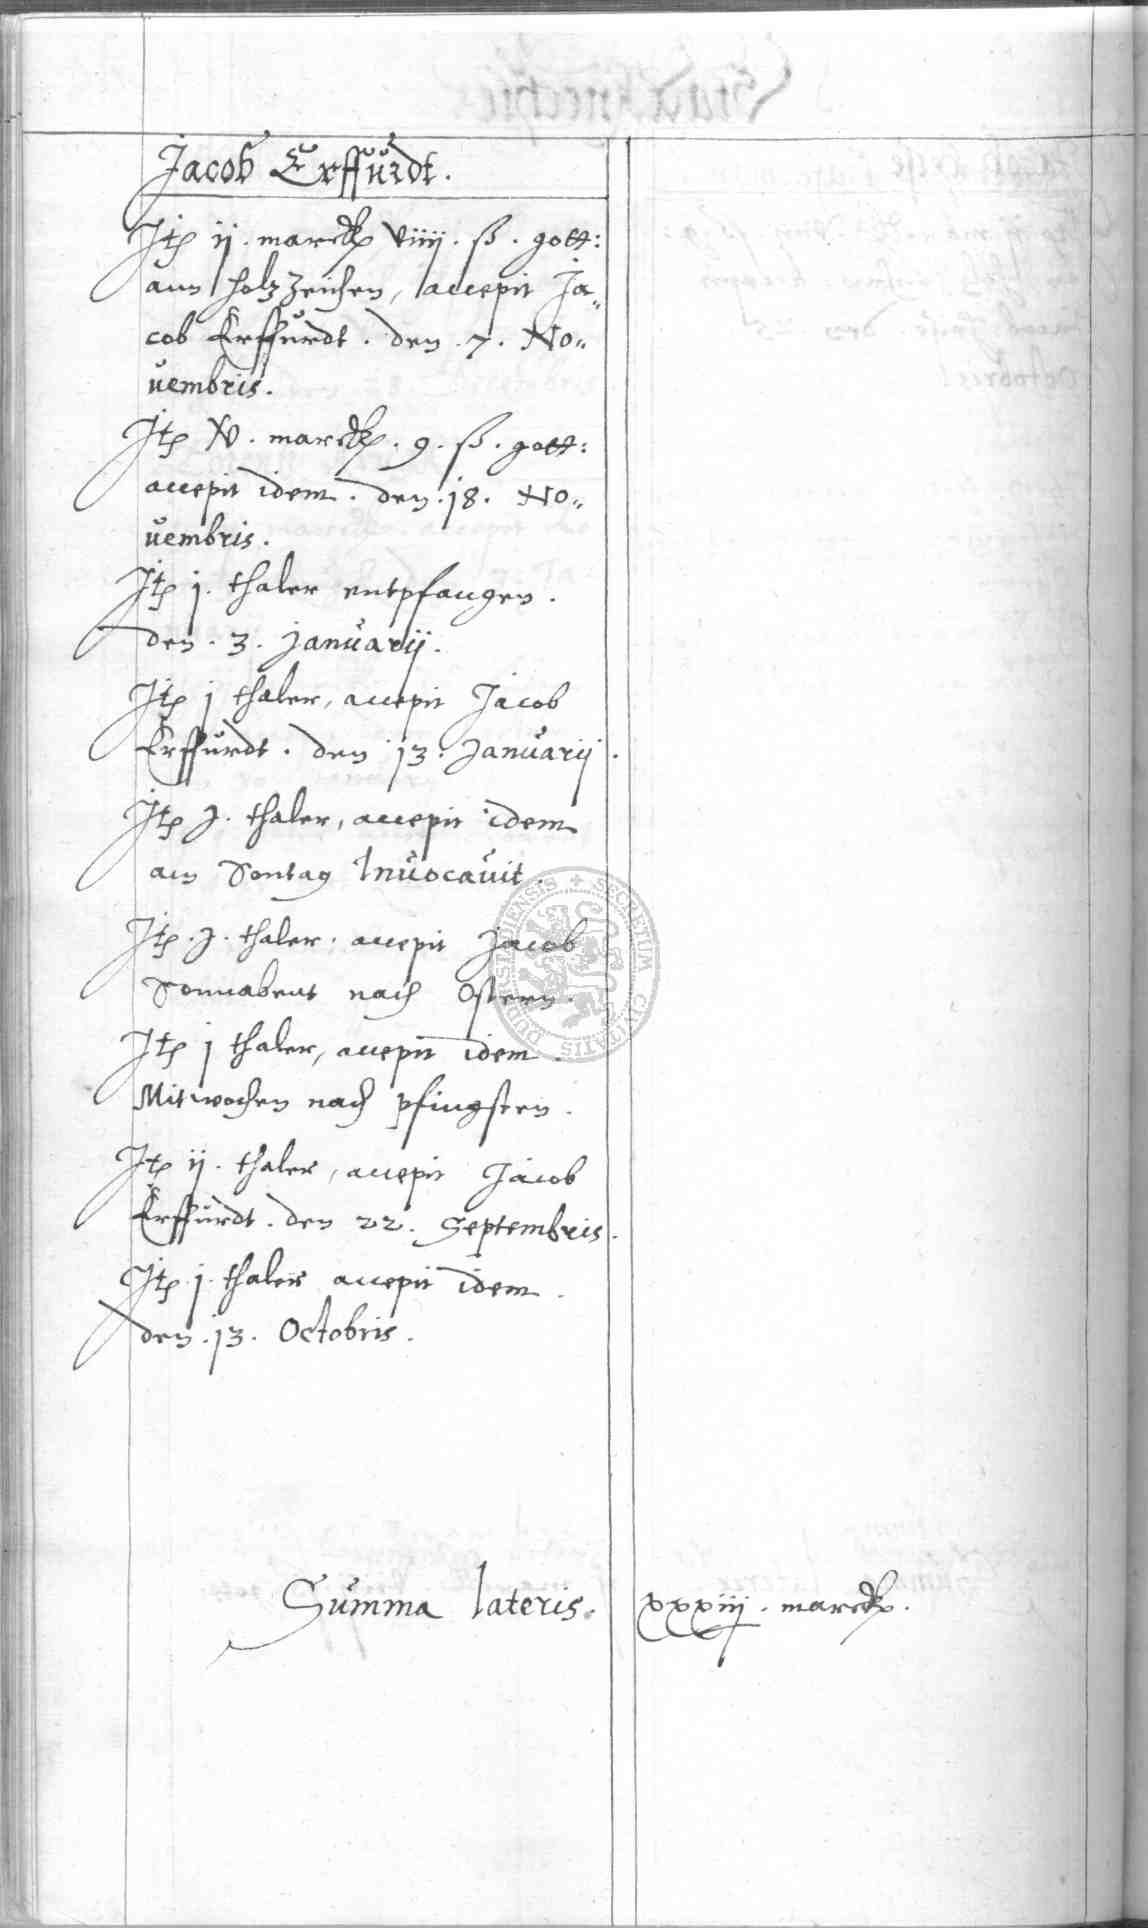 Jacob Erffurdt.
Jtem ij. marck viiij. ß. gott:
ann holtz Zeichen, accepit Ja„
cob Erffurdt. den .7. No„
uembris.
Jtem xv. marck. 9. ß. gott:
accepit idem. den .18. No„
uembris.
Jtem j. thaler entpfangen.
den .3. januarij.
Jtem j thaler, accepit Jacob
Erffurdt. den 13. januarij.
Jtem j. thaler, accepit idem
am Sontag Inuocauit.
Jtem .j. thaler, accepit jacob
Sonnabent nach Ostern.
Jtem j thaler, accepit idem.
Mitwochen nach pfingsten.
Jtem ij. thaler, accepit Jacob
Erffurdt. den 22. Septembris.
Jtem .j. thaler accepit idem.
den .13. Octobris.
SECRETUM CIVITATIS DUDERSTADIENSIS
Summa lateris. xxxiij. marck.